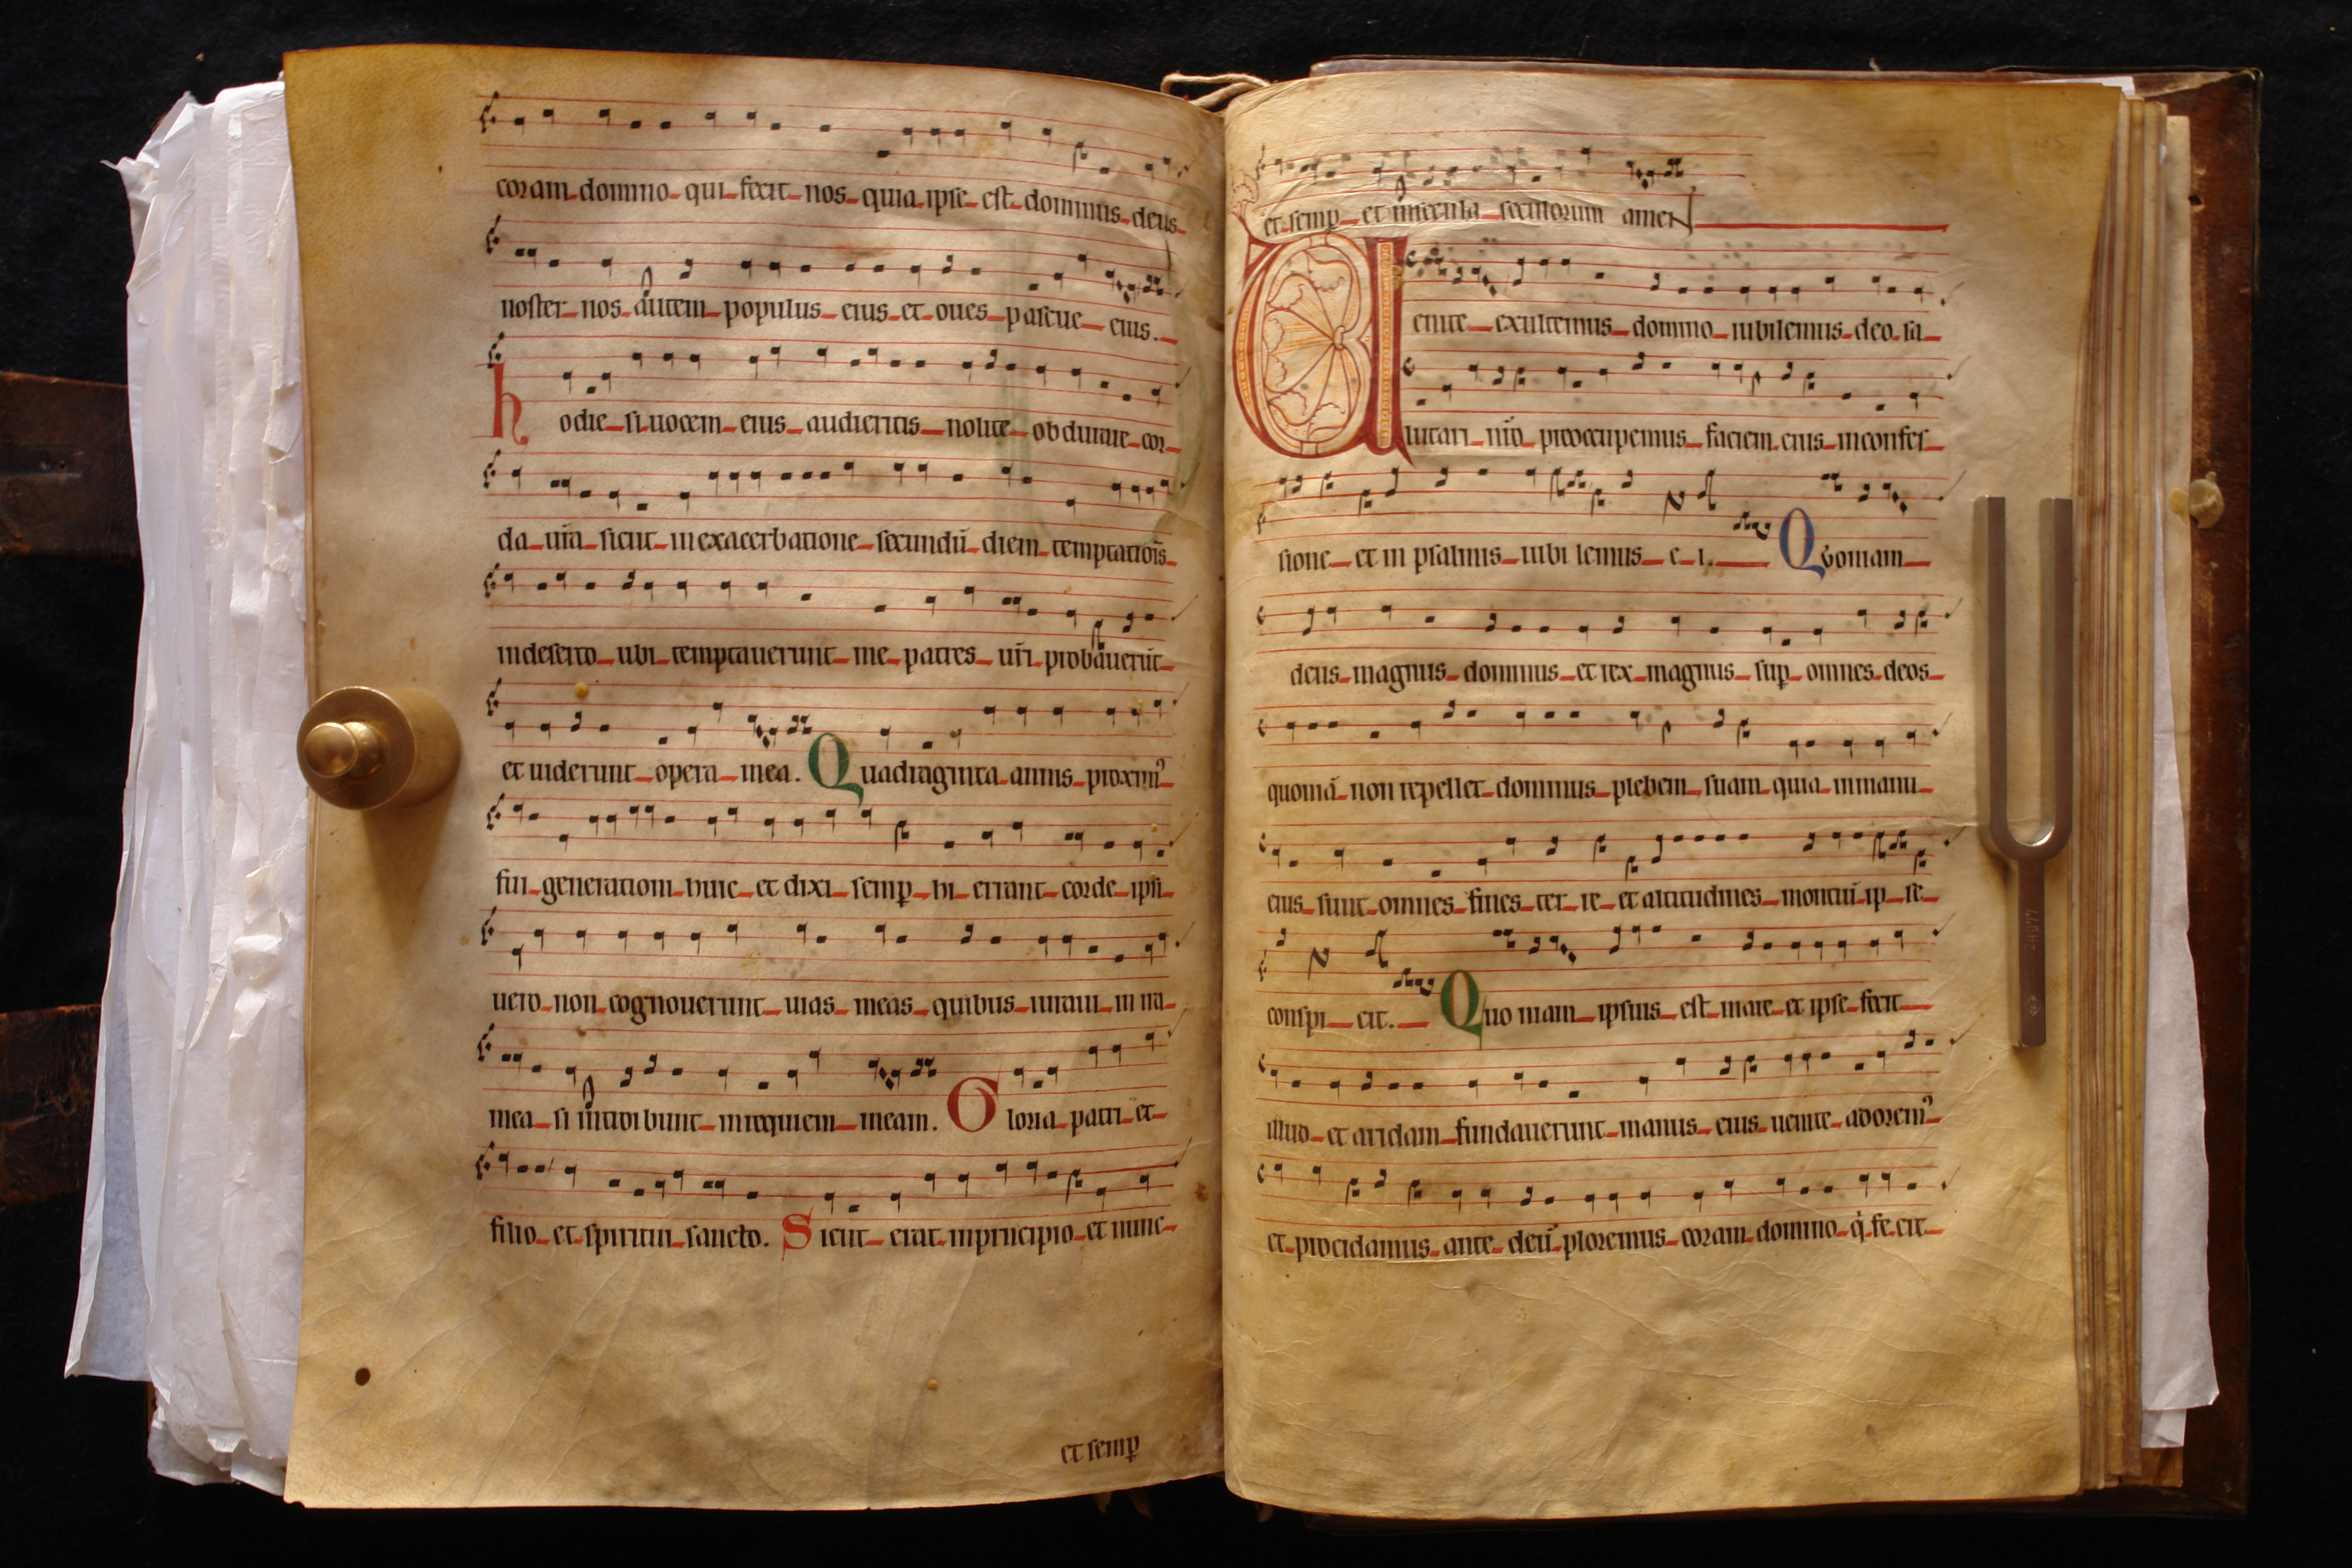 coram domino qui fecit nos quia ipse est dominus deus
noster nos autem populus eius et oues pascue eius.
hodie si uocem eius audieritis nolite obdurare cor
da ur̄a sicut in exacerbatione secundū diem temptatiōis
in deserto ubi temptauerunt me patres ur̄i probauerūt
et uiderunt opera mea. Quadraginta annis proxim᾽
fui generationi huic et dixi semꝑ hi errant corde ipsi
uero non cognouerunt uias meas quibus iuraui in ira
mea si introibunt in requiem meam. Gloria patri et
filio et spiritui sancto. Sicut erat in principio et nunc
et semꝑ
et semꝑ et in secula seculorum ameN
Uenite exultemus domino iubilemus deo sa
lutari nr̄o preoccupemus faciem eius in confes
sione et in psalmis iubilemus e i. Quoniam
deus magnus dominus et rex magnus suꝑ omnes deos
quoniā non repellet dominus plebem suam quia in manu
eius sunt omnes fines terre et altitudines montiū ipse
conspicit. Quoniam ipsius est mare et ipse fecit
illud et aridam fundauerunt manus eius uenite adorem᾽
et procidamus ante deū ploremus coram domino q̇ fecit
440HZ